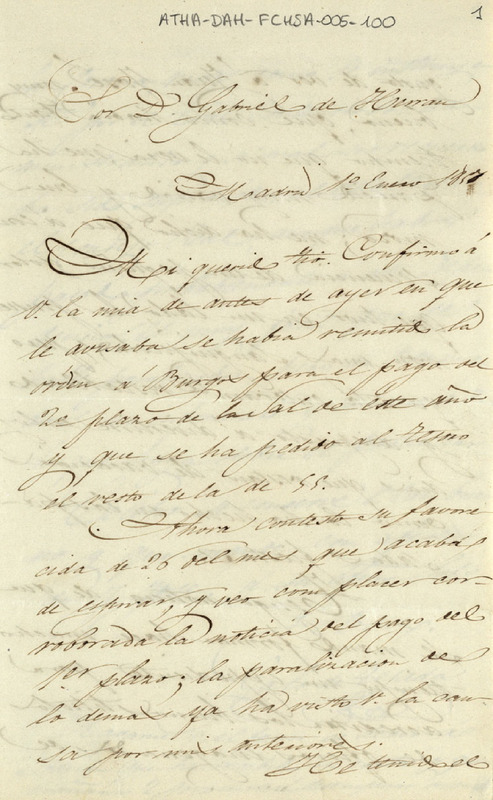 ATHA-DAH-FCHSA-005-100
1
Sor. D. Gabriel de Herran
Madrid 1º Enero 1857
Mi querido tio: Confirmo á
V. la mia de antes de ayer en que
le avisaba se habia remitido la
orden á Burgos para el pago del
2º plazo de la Sal de este año
y que se ha pedido al Tesoro
el resto de la de 55.
Ahora contesto su favore
cida de 26 del mes que acaba
de espirar, y veo con placer cor-
roborada la noticia del pago del
1er plazo; la paralizacion de
lo demas ya ha visto V. la cau-
sa por mis anteriores.
He tenido el